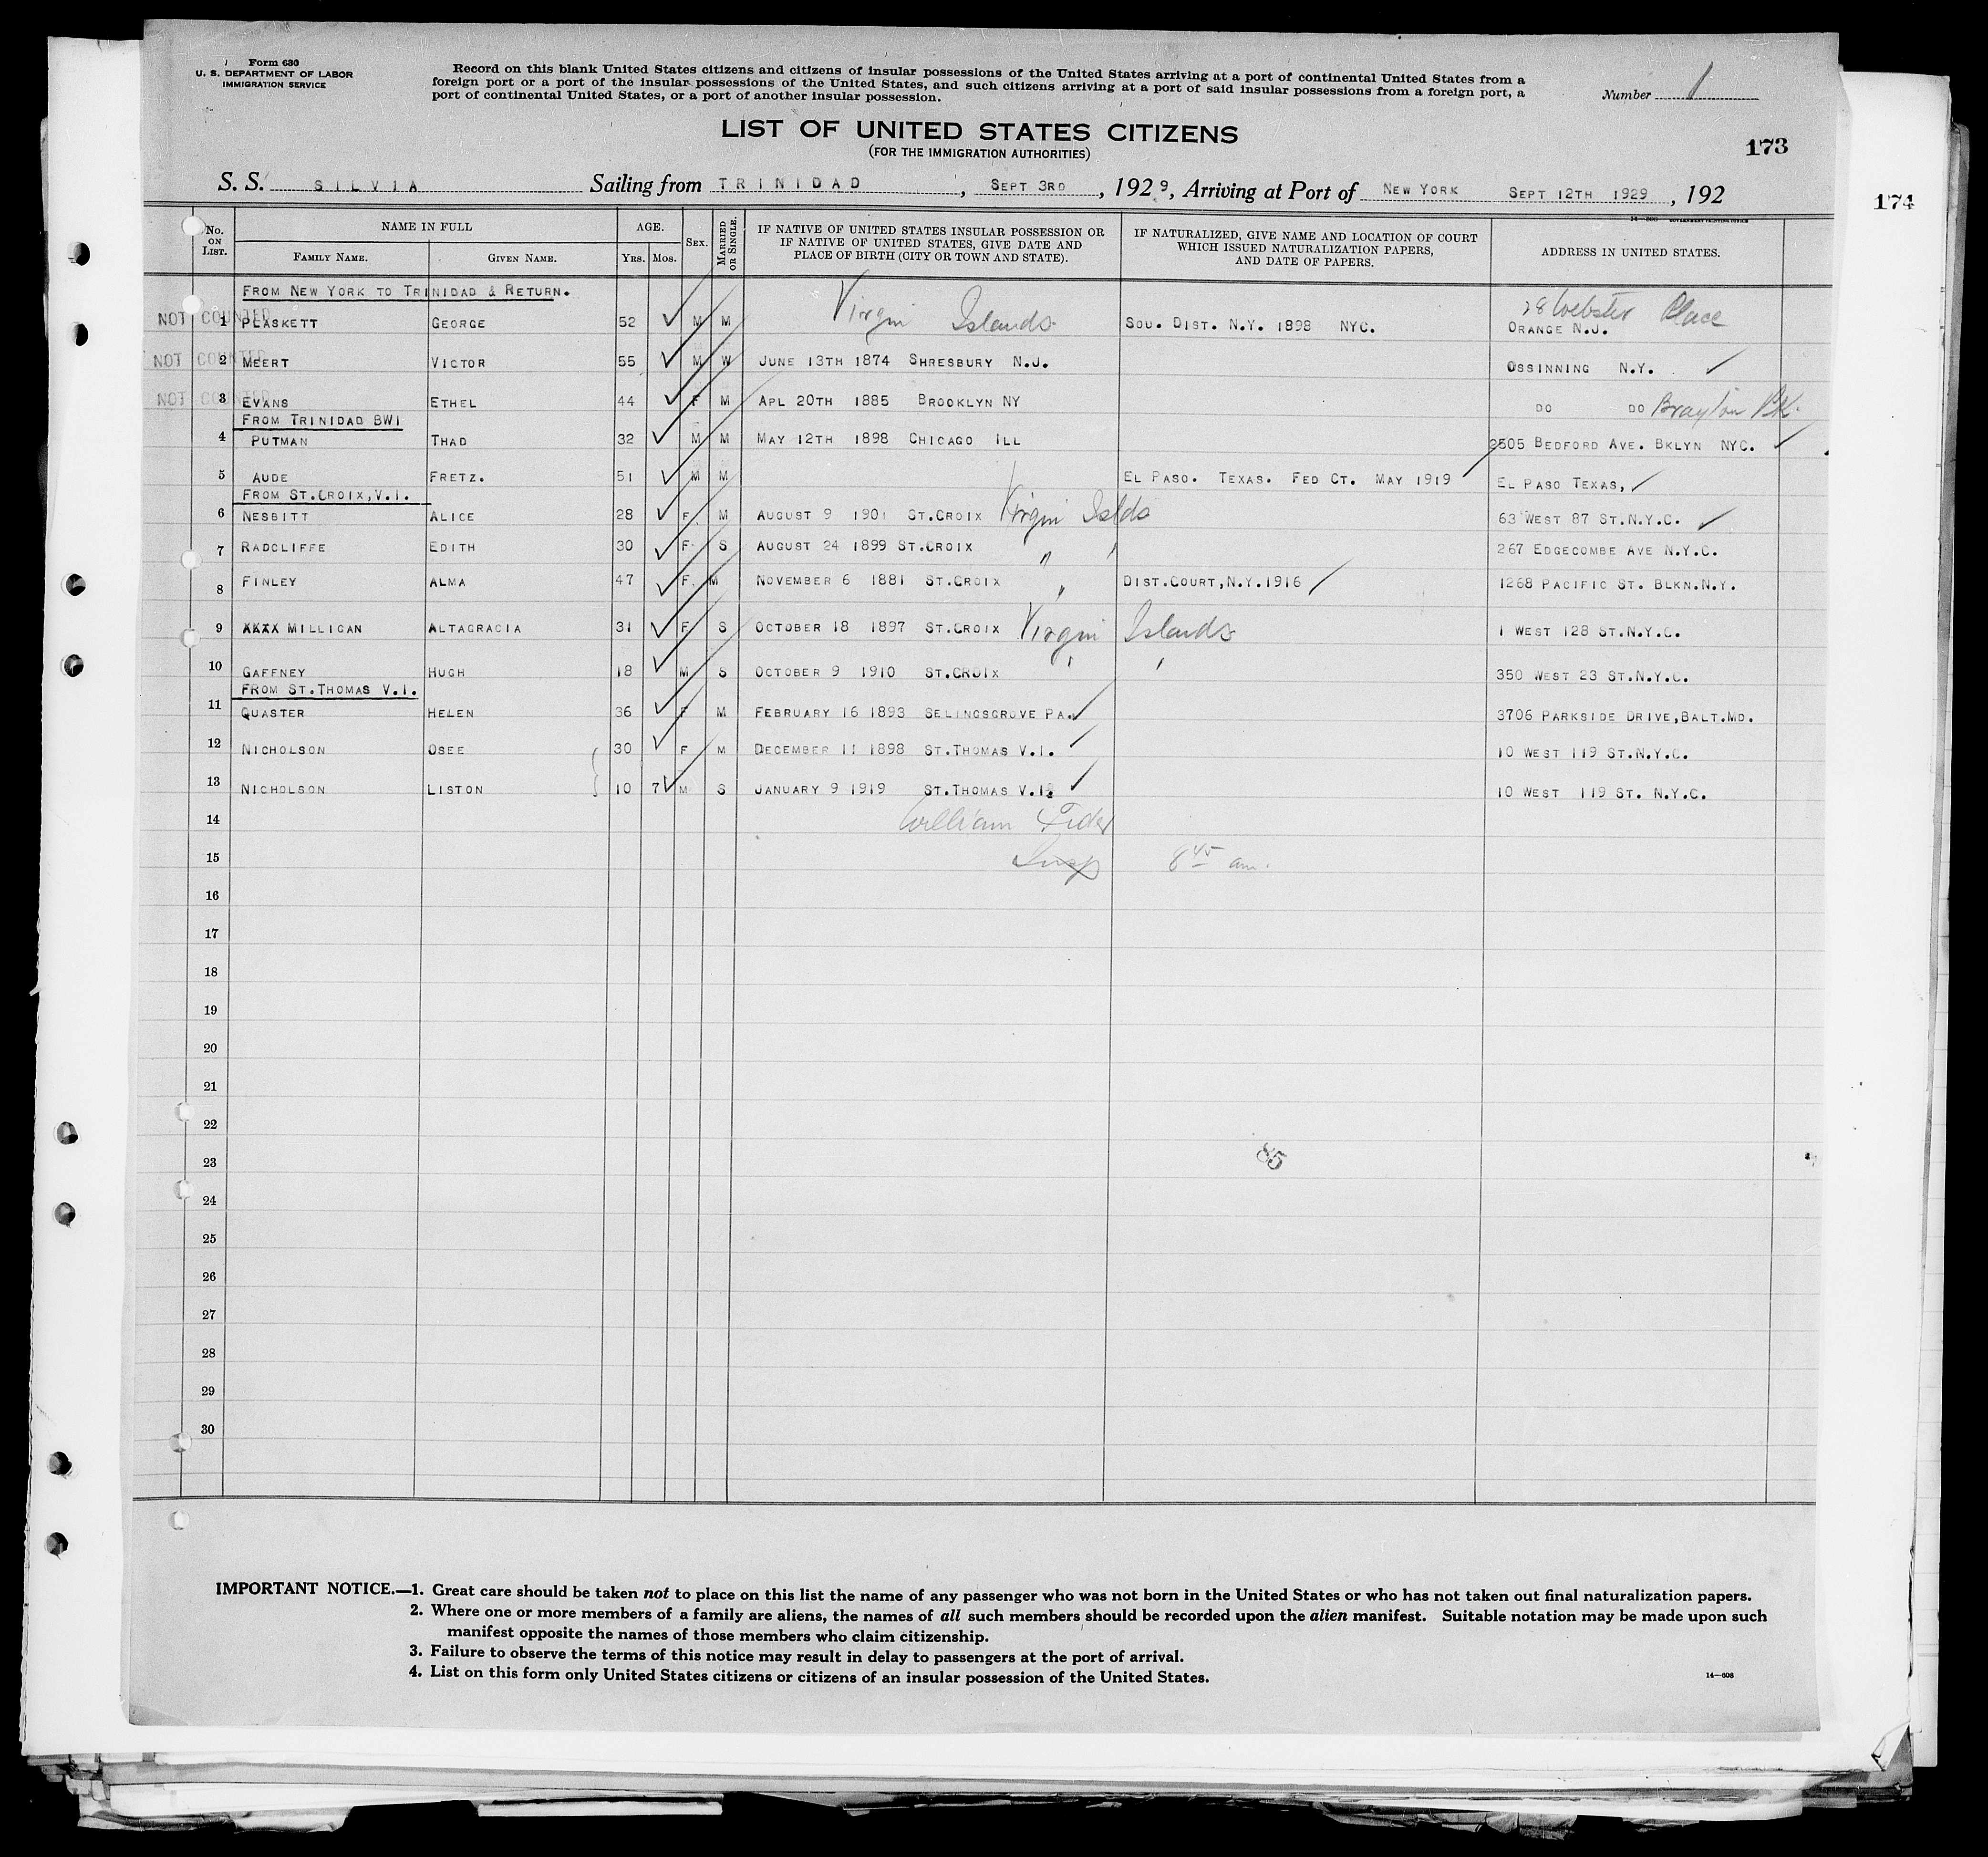 Form 630
U. S. DEPARTMENT OF LABOR
IMMIGRATION SERVICE
Record on this blank United States citizens and citizens of insular possessions of the United States arriving at a port of continental United States from a
foreign port or a port of the insular possessions of the United States, and such citizens arriving at a port of said insular possessions from a foreign port, a
port of continental United States, or a port of another insular possession.
Number 1
LIST OF UNITED STATES CITIZENS
(FOR THE IMMIGRATION AUTHORITIES)
173
174
S. S. SILVIA Sailing from TRINIDAD, SEPT 3RD, 1929, Arriving at Port of NEW YORK SEPT 12TH 1929, 192
No. ON LIST. NAME IN FULL AGE. SEX. MARRIED OR SINGLE. IF NATIVE OF UNITED STATES INSULAR POSSESSION OR IF NATIVE OF UNITED STATES, GIVE DATE AND PLACE OF BIRTH (CITY OR TOWN AND STATE). IF NATURALIZED, GIVE NAME AND LOCATION OF COURT WHICH ISSUED NATURALIZATION PAPERS, AND DATE OF PAPERS. ADDRESS IN UNITED STATES.
FAMILY NAME. GIVEN NAME. YRS. MOS.
FROM NEW YORK TO TRINIDAD & RETURN.
NOT COUNTED 1 PLASKETT GEORGE 52 M M Virgin Islands SOU. DIST. N.Y. 1898 NYC. 28 Webster Place ORANGE N.J.
NOT COUNTED 2 MEERT VICTOR 55 M W JUNE 13TH 1874 SHRESBURY N.J. OSSINNING N.Y.
NOT COUNTED 3 EVANS ETHEL 44 F M APL 20TH 1885 BROOKLYN NY DO DO
FROM TRINIDAD BWI
4 PUTMAN THAD 32 M M MAY 12TH 1898 CHICAGO ILL 2505 BEDFORD AVE. BKLYN NYC.
5 AUDE FRETZ. 51 M M EL PASO. TEXAS. FED CT. MAY 1919 EL PASO TEXAS,
FROM ST.CROIX,V.I.
6 NESBITT ALICE 28 F M AUGUST 9 1901 ST.CROIX Virgin Islds 63 WEST 87 ST.N.Y.C.
7 RADCLIFFE EDITH 30 F S AUGUST 24 1899 ST.CROIX " 267 EDGECOMBE AVE N.Y.C.
8 FINLEY ALMA 47 F. M NOVEMBER 6 1881 ST.CROIX " DIST.COURT,N.Y.1916 1268 PACIFIC ST. BLKN.N.Y.
9 XXXX MILLIGAN ALTAGRACIA 31 F S OCTOBER 18 1897 ST.CROIX Virgin Islands 1 WEST 128 ST.N.Y.C.
10 GAFFNEY HUGH 18 M S OCTOBER 9 1910 ST.CROIX 350 WEST 23 ST.N.Y.C.
FROM ST.THOMAS V.I.
11 QUASTER HELEN 36 F M FEBRUARY 16 1893 SELINGSGROVE PA. 3706 PARKSIDE DRIVE,BALT.MD.
12 NICHOLSON OSEE 30 F M DECEMBER 11 1898 ST.THOMAS V.I. 10 WEST 119 ST.N.Y.C.
13 NICHOLSON LISTON 10 7 M S JANUARY 9 1919 ST.THOMAS V.I. 10 WEST 119 ST. N.Y.C.
14 William
15 Insp 8 45 am.
16
17
18
19
20
21
22
23 85
24
25
26
27
28
29
30
IMPORTANT NOTICE.—1. Great care should be taken not to place on this list the name of any passenger who was not born in the United States or who has not taken out final naturalization papers.
2. Where one or more members of a family are aliens, the names of all such members should be recorded upon the alien manifest. Suitable notation may be made upon such
manifest opposite the names of those members who claim citizenship.
3. Failure to observe the terms of this notice may result in delay to passengers at the port of arrival.
4. List on this form only United States citizens or citizens of an insular possession of the United States.
14—608